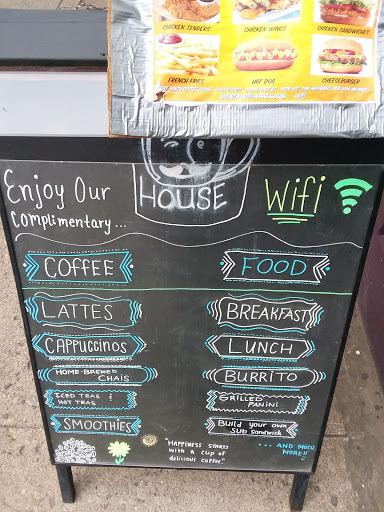 CHICKEN TENDERS
CHICKEN WINGS
CHICKEN SANDWICHES
FRENCH FRIES
HOT DOG
CHEESEBURGER
HOUSE
Enjoy Our
Complimentary...
Wifi
COFFEE
FOOD
LATTES
BREAKFAST
CAPPUCCINOS
LUNCH
HOME-BREWED
CHAIS
BURRITO
ICED TEAS &
HOT TEAS
GRILLED
PANINI
SMOOTHIES
Build your own
SUB Sandwich
"HAPPINESS STARTS
WITH A CUP OF
delicious coffee"
... AND MUCH
MORE!!